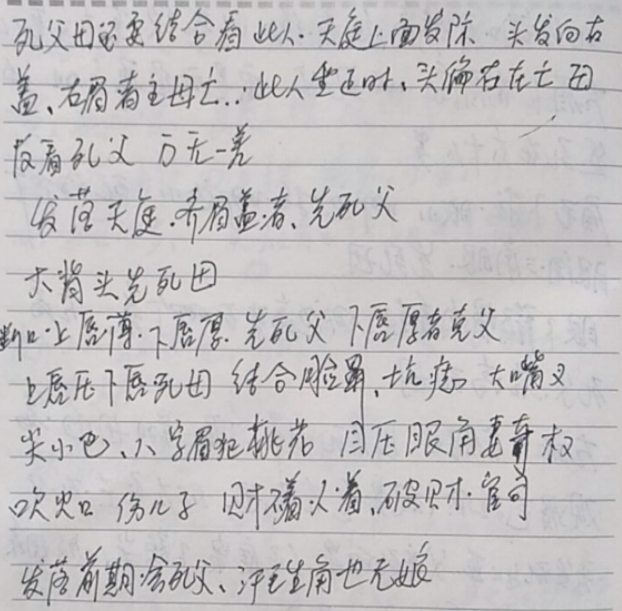 死父母还要结合看此人.天庭上面发际.头发向右
盖、右眉者主母亡..此人坐远时、头偏右在亡母
反看死父 万无一差
发落天庭.齐眉盖者、先死父
大背头先死母
断口.上唇薄.下唇厚.先死父 下唇厚者克父
上唇压下唇死母 结合脸 、坑痣 大嘴叉
尖小巴、八字眉犯桃花 眉压眼角妻夺权
吹火口 伤儿子 财 着、破财.官司
发落前期.会死父、 生角也无娘